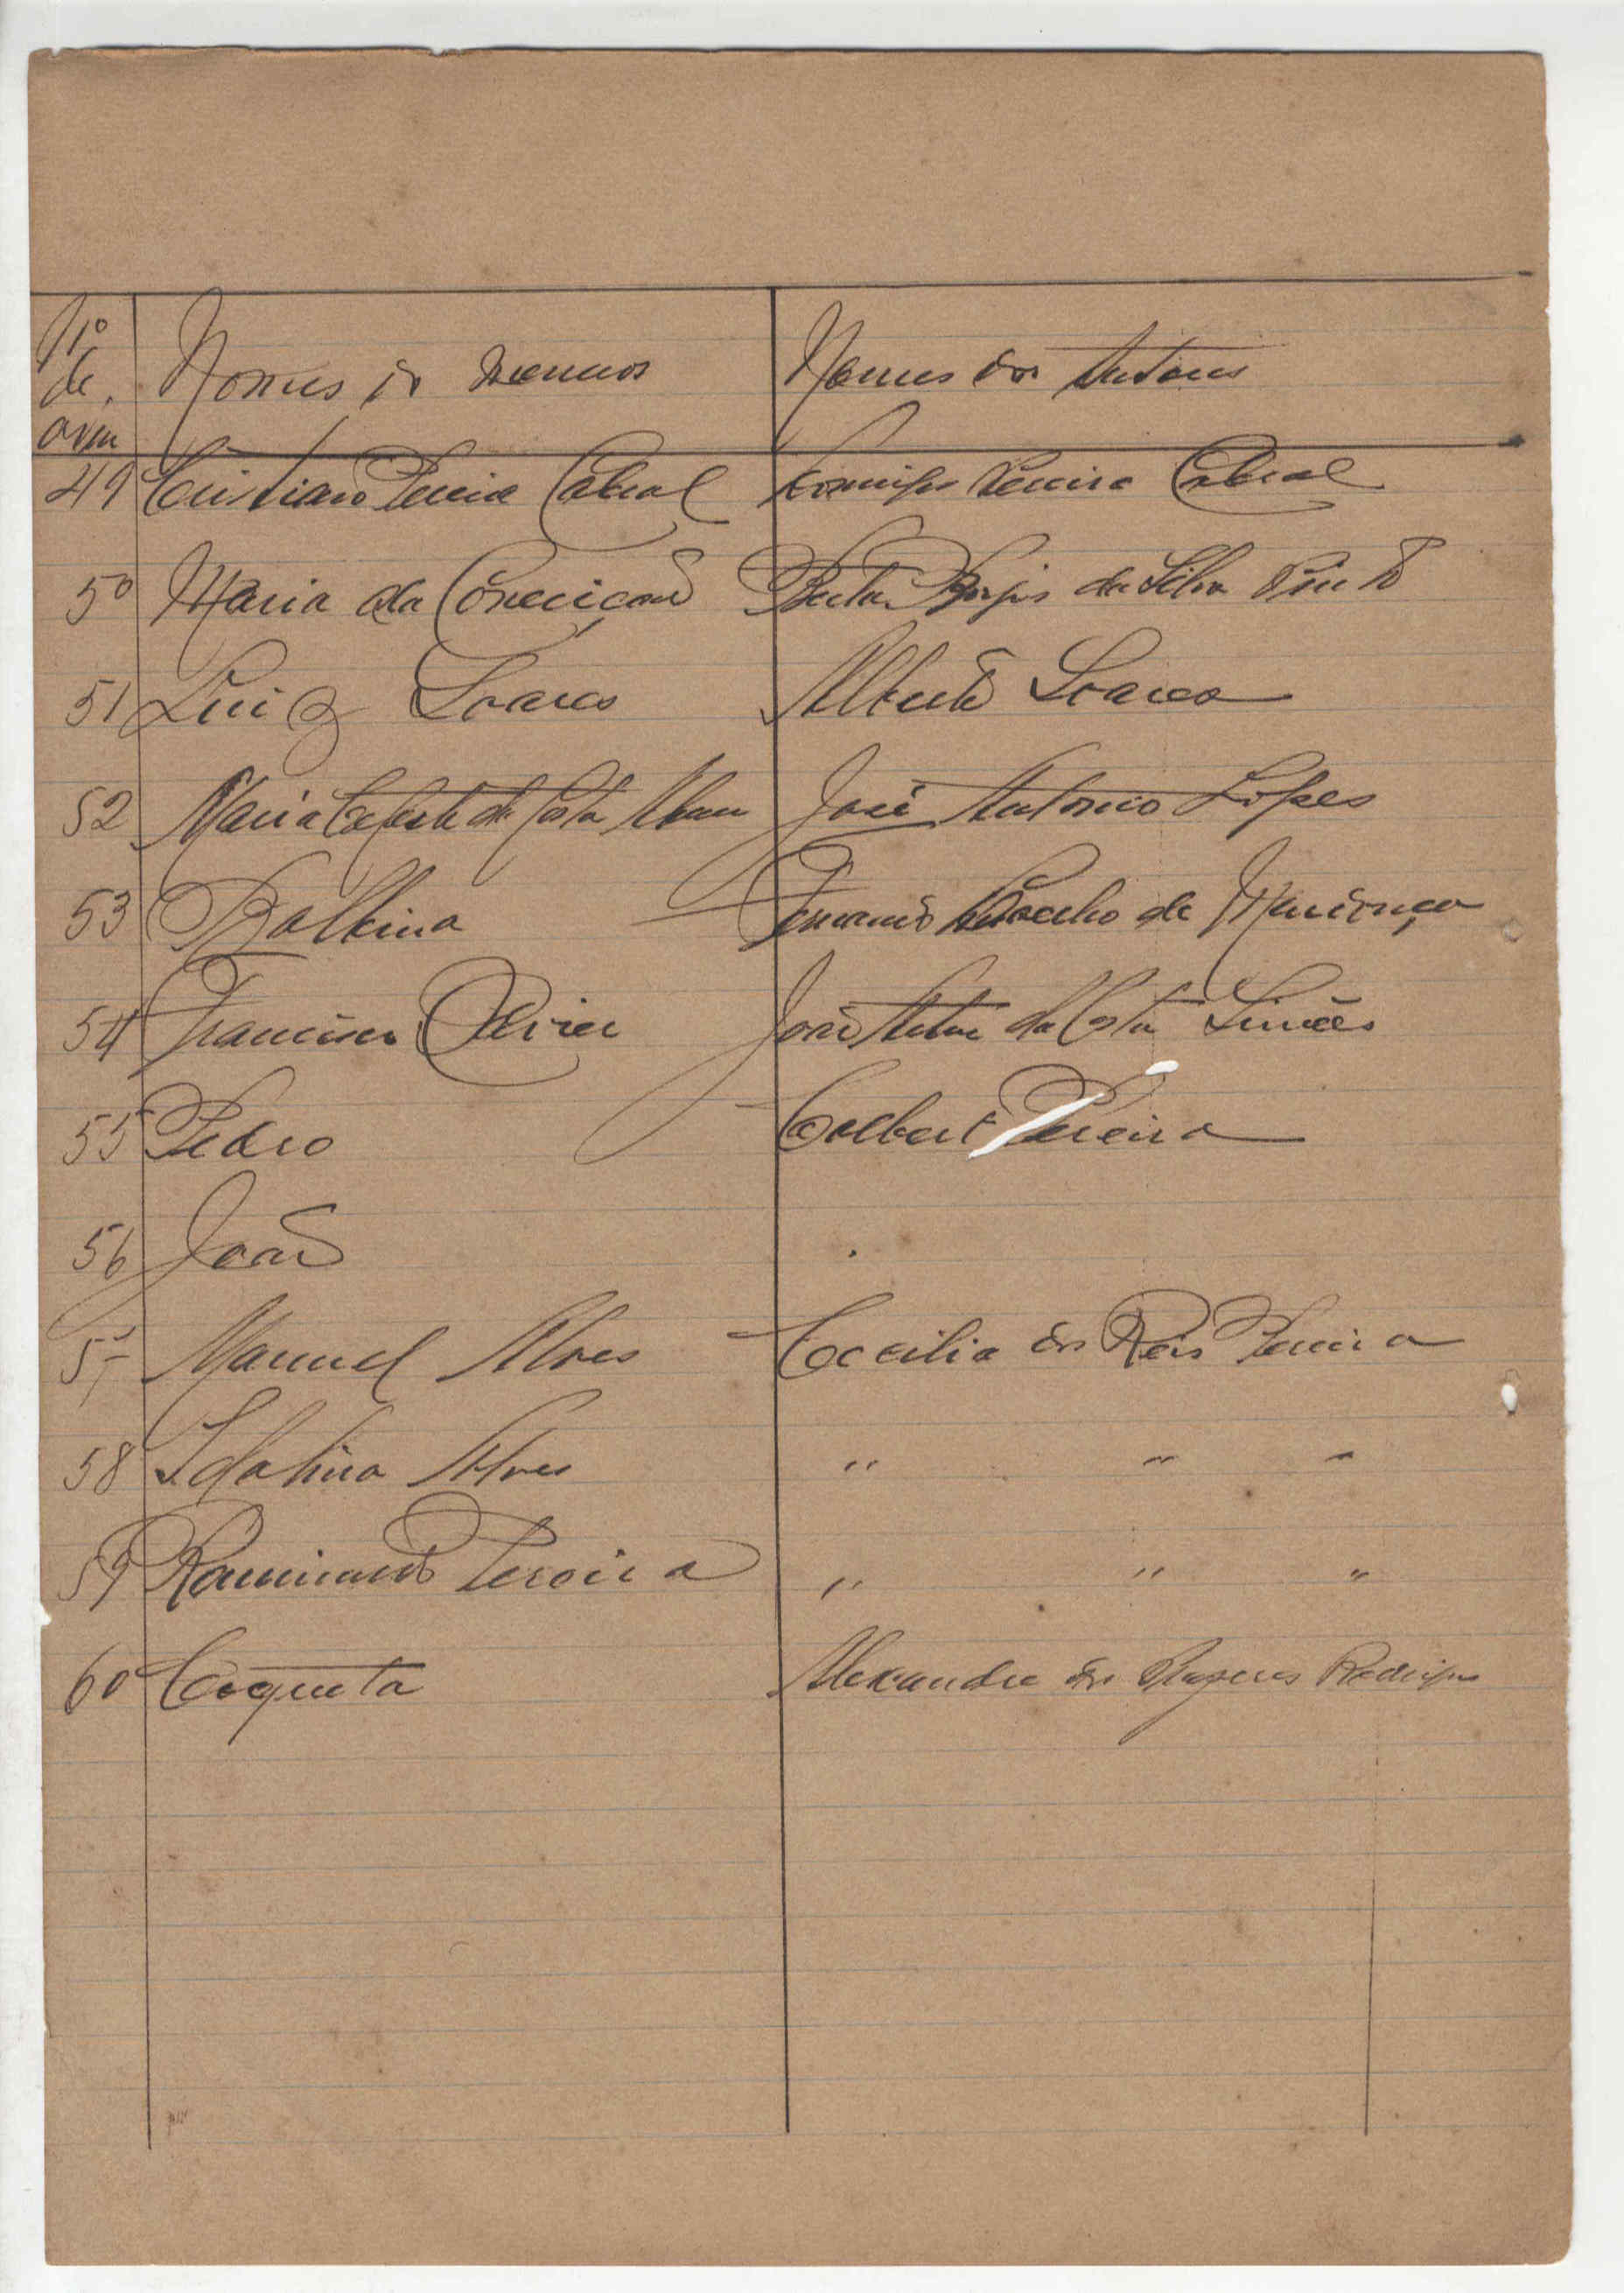 Nº
de
orm
Nomes do menores
Nomes dos tutores
49 Cristiano Pereira Cabral Domingos Pereira Cabral
50 Maria da Conceição Berta Borges da Silva Pinto
51 Luiz Soares Alberto Soares
52 Maria Celeste da Costa José Antonio Lopes
53 Balbina Fernando de Mendonça
54 Francisco Olivier José Artur da Costa Simões
55 Pedro Colbert Pereira
56 João
57 Manuel Alves Cecilia dos Reis Pereira
58 Idalina Alves " " "
59 Raimundo Pereira " " "
60 Coqueta Alexandre dos Rodrigues